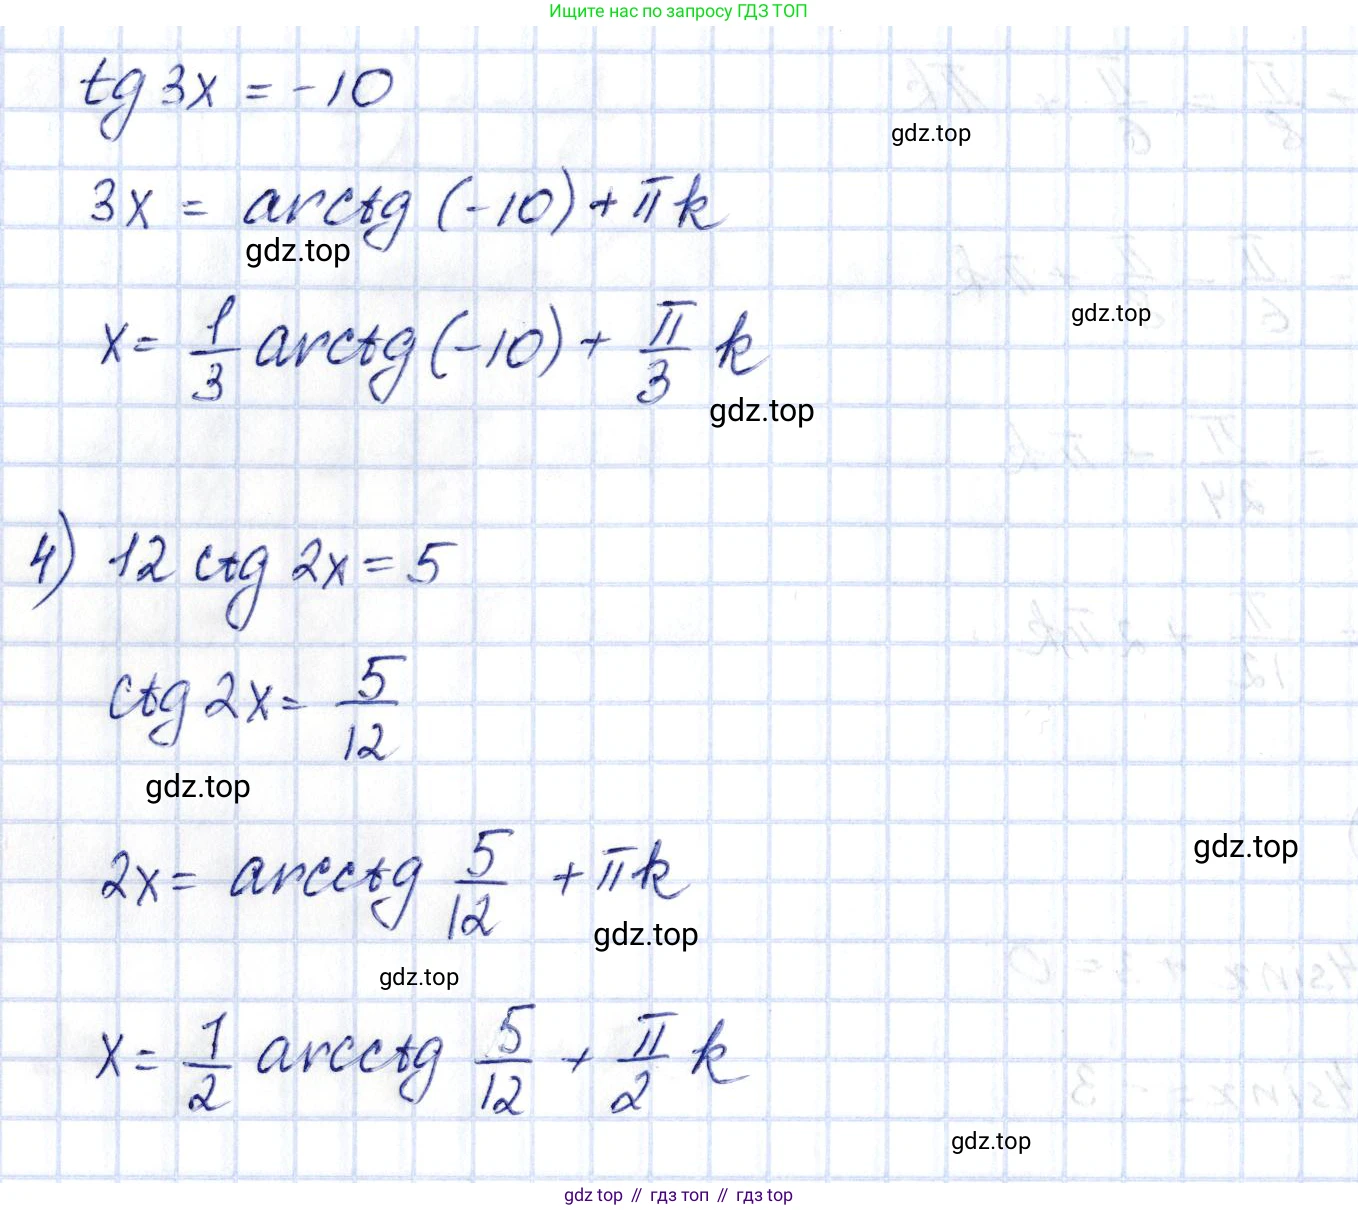 Ищите нас по запросу ГДЗ ТОП
tg 3x = -10
gdz.top
3x = arctg (-10) + πk
gdz.top
gdz.top
x = 1/3 arctg (-10) + π/3 k
gdz.top
4) 12 ctg 2x = 5
ctg 2x = 5/12
gdz.top
gdz.top
2x = arcctg 5/12 + πk
gdz.top
gdz.top
x = 1/2 arcctg 5/12 + π/2 k
gdz.top
gdz top // гдз топ // gdz top